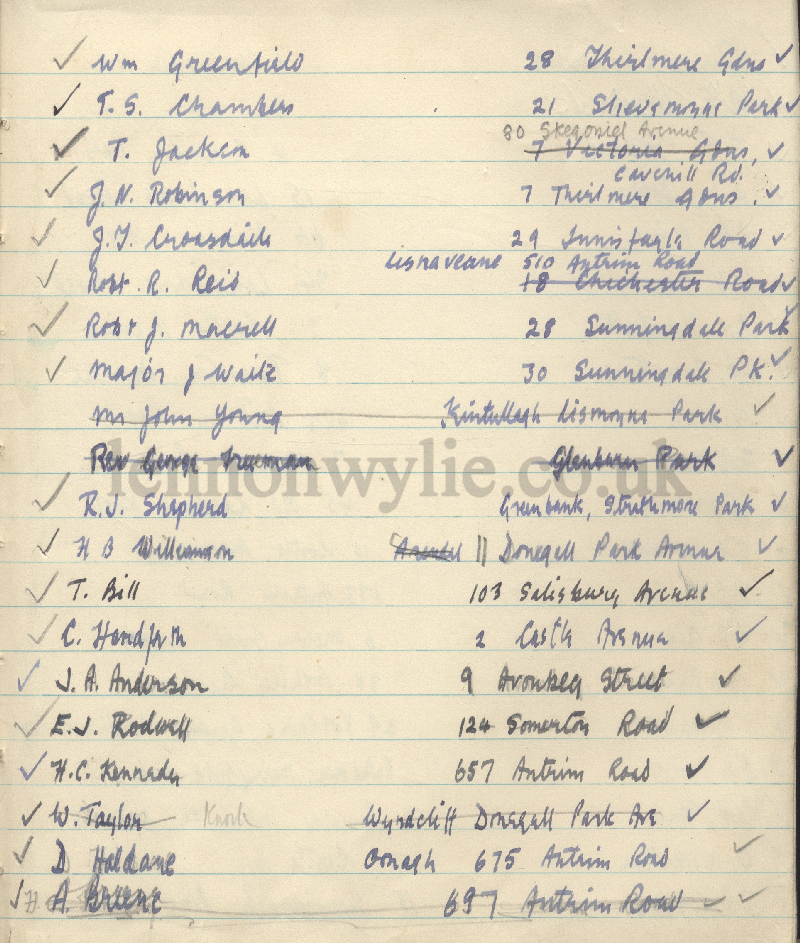 Wm Greenfield 28 Thirlmere Gdns
T. S. Chambers 21 Slievemoyne Park
80 Skegoniel Avenue
T. Jackson 7 Victoria Gdns,
Cavehill Rd.
J. N. Robinson 7 Thirlmere Gdns.
J. T. Croasdaile 29 Innisfayle Road
Lisnaveane 510 Antrim Road
Robt. R. Reid 18 Chichester Road
Robt J. Macrell 28 Sunningdale Park
Major J Waitz 30 Sunningdale Pk.
Mr John Young Kintullagh Lismoyne Park
Rev George Freeman Glenburn Park
lennonwylie.co.uk
R. J. Shepherd Greenbank, Strathmore Park
H B Williamson 11 Donegall Park Avenue
T. Bill 103 Salisbury Avenue
C. Handforth 2 Castle Avenue
J. A. Anderson 9 Avonbeg Street
E. J. Rodwell 124 Somerton Road
H. C. Kennedy 657 Antrim Road
W. Taylor Knock Wyndcliff Donegall Park Ave
D Haldane Oonagh 675 Antrim Road
A. Greene 697 Antrim Road